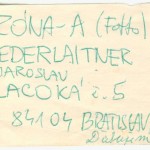 ZÓNA-A (Fotto)
EDERLAITNER
JAROSLAV
LACOKÁ č. 5
84104 BRATISLAV
Ďakujem